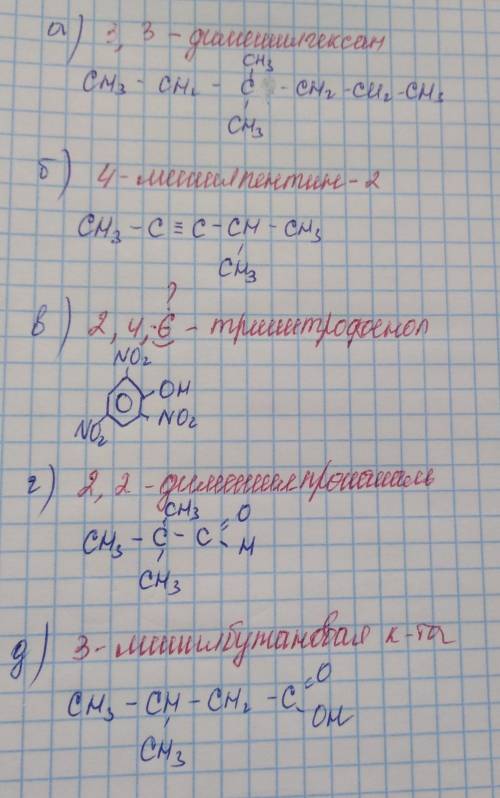 а) 3, 3 - диметилгексан
CH3
CH3 - CH2 - C - CH2 - CH2 - CH3
CH3
б) 4 - метилпентин - 2
CH3 - C ≡ C - CH - CH3
CH3
?
в) 2, 4, 6 - тринитрофенол
NO2
OH
NO2
NO2
г) 2, 2 - диметилпропаналь
CH3
O
CH3 - C - C
H
CH3
д) 3 - метилбутановая к-та
CH3 - CH - CH2 - C
O
OH
CH3